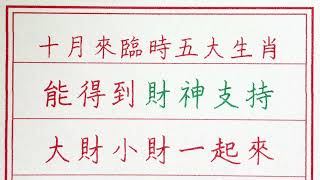 十月來臨時五大生肖
能得到財神支持
大財小財一起來